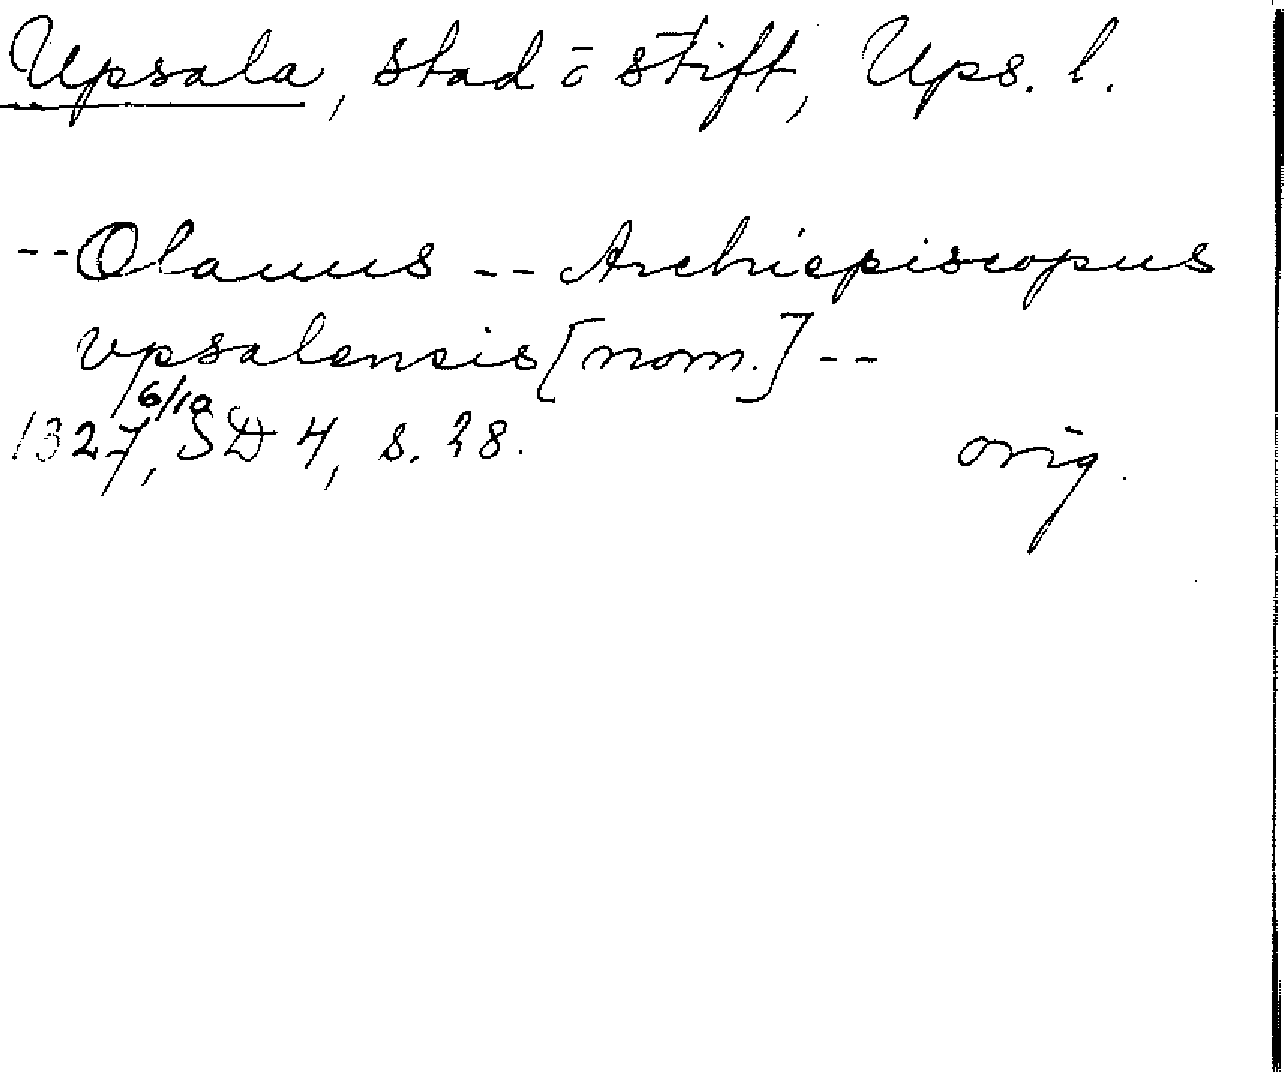 Upsala, stad o stift, Ups. l.
--Olauus -- Archiepiscopus
vpsalensis [nom.] --
1327, 6/10 SD 4, s. 28.
orig.